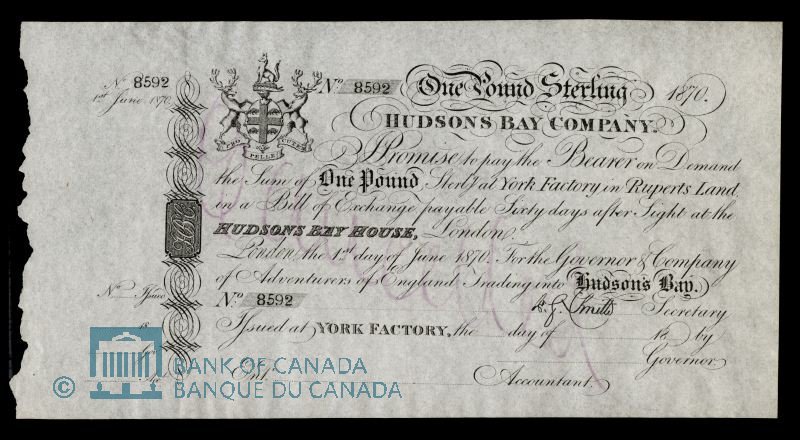 No 8592
1st June 1870
PRO PELLE CUTEM
No 8592 One Pound Sterling 1870.
HUDSONS BAY COMPANY.
I Promise to pay the Bearer on Demand
the Sum of One Pound Sterlg at York Factory in Ruperts Land
in a Bill of Exchange payable Sixty days after Sight at the
HUDSONS BAY HOUSE, London.
London the 1st day of June 1870. For the Governor & Company
of Adventurers of England Trading into Hudson's Bay.
No 8592
Smith Secretary
Issued at YORK FACTORY, the day of 18 by
Governor.
Entd
Accountant.
No Issued
18
HBC
© BANK OF CANADA
BANQUE DU CANADA